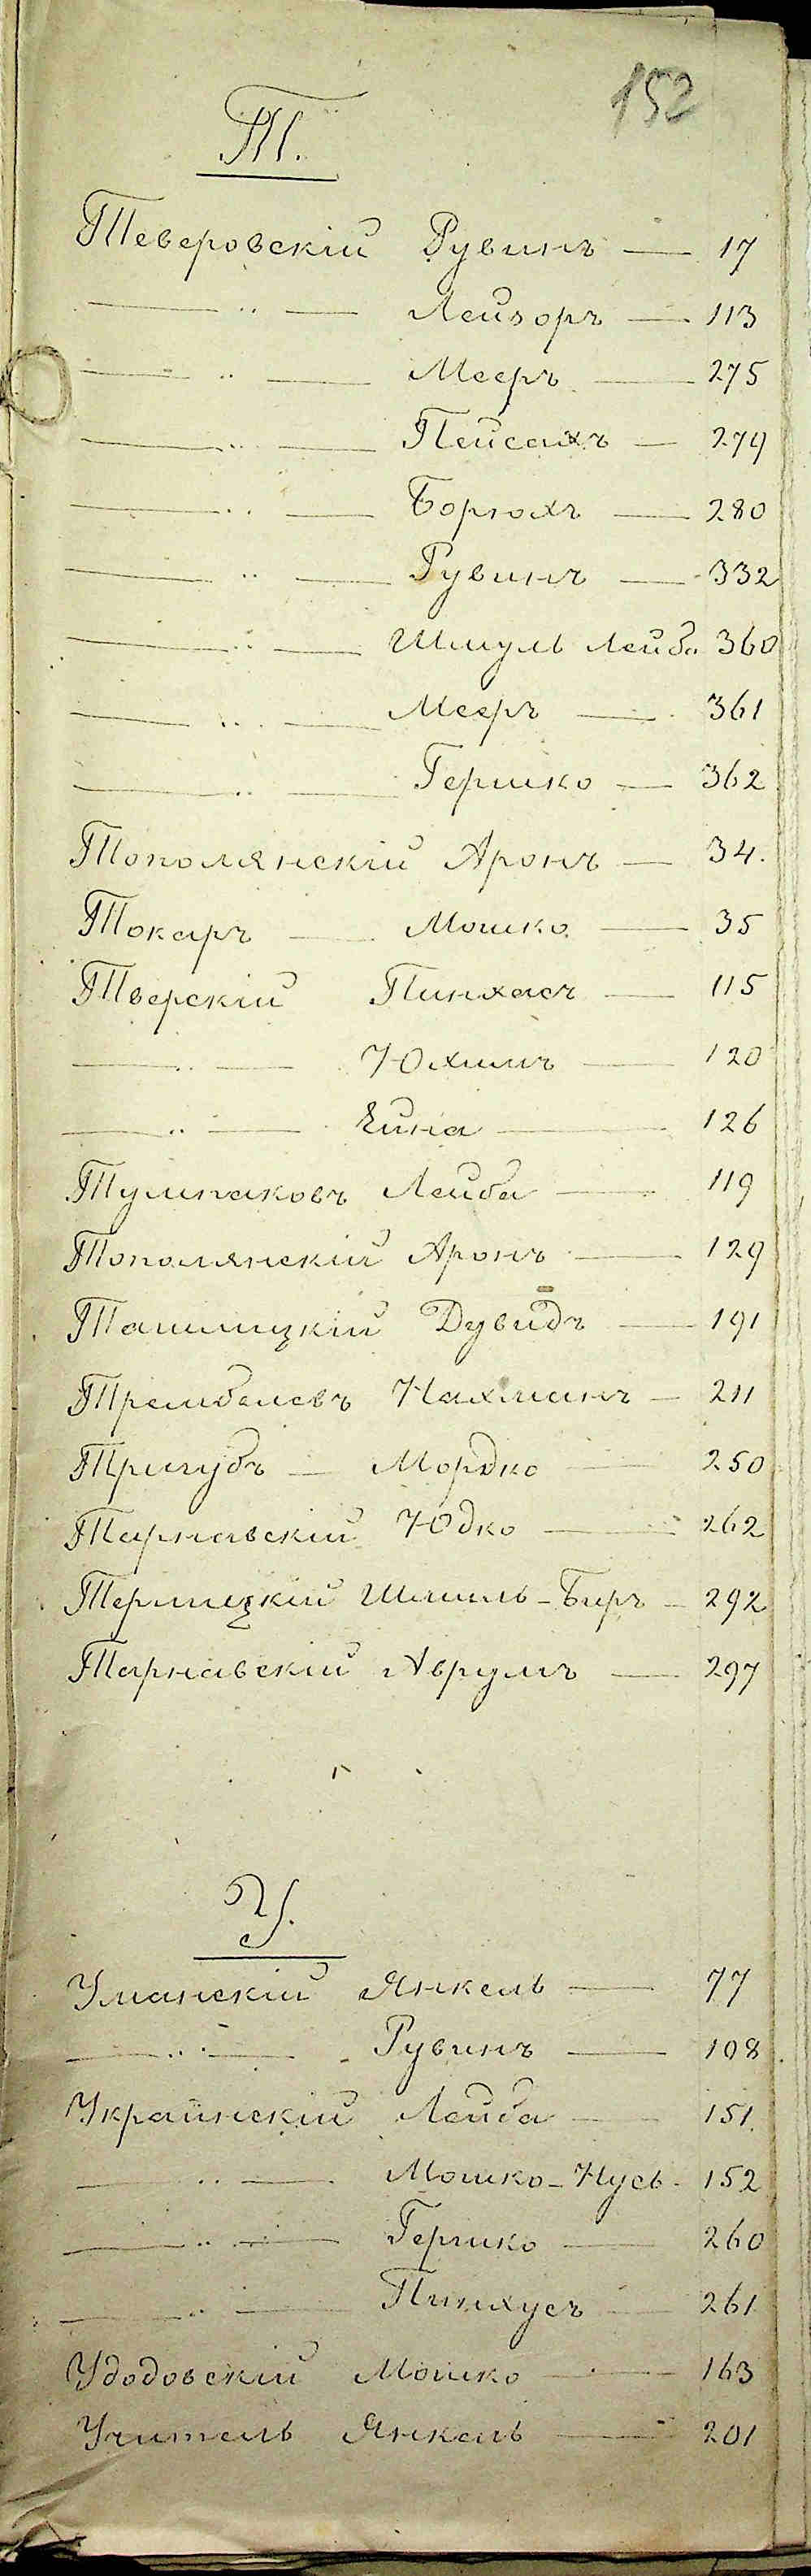 152
Т.
Теверовскій Рувинъ — 17
— „ — Лейзоръ — 113
— „ — Мееръ — 275
— „ — Пейсахъ — 279
— „ — Борюхъ — 280
— „ — Рувинъ — 332
— „ — Шмуль Лейба 360
— „ — Мееръ — 361
— „ — Гершко — 362
Тополянскій Аронъ — 34.
Токаръ — Мошко — 35
Тверскій Пинхасъ — 115
— „ — Юхимъ — 120
— „ — Хина — 126
Тумпаковъ Лейба — 119
Тополянскій Аронъ — 129
Ташлицкій Дувидъ — 191
Трембачевъ Нахманъ — 211
Тригубъ — Мордко — 250
Тарнавскій Юдко — 262
Терлицкій Шмиль-Биръ — 292
Тарнавскій Аврумъ — 297
У.
Уманскій Янкель — 77
— „ — Рувинъ — 108
Украинскій Лейба — 151.
— „ — Мошко-Нусь - 152
— „ — Гершко — 260
— „ — Пинхусъ — 261
Удодовскій Мошко — 163
Учитель Янкель — 201